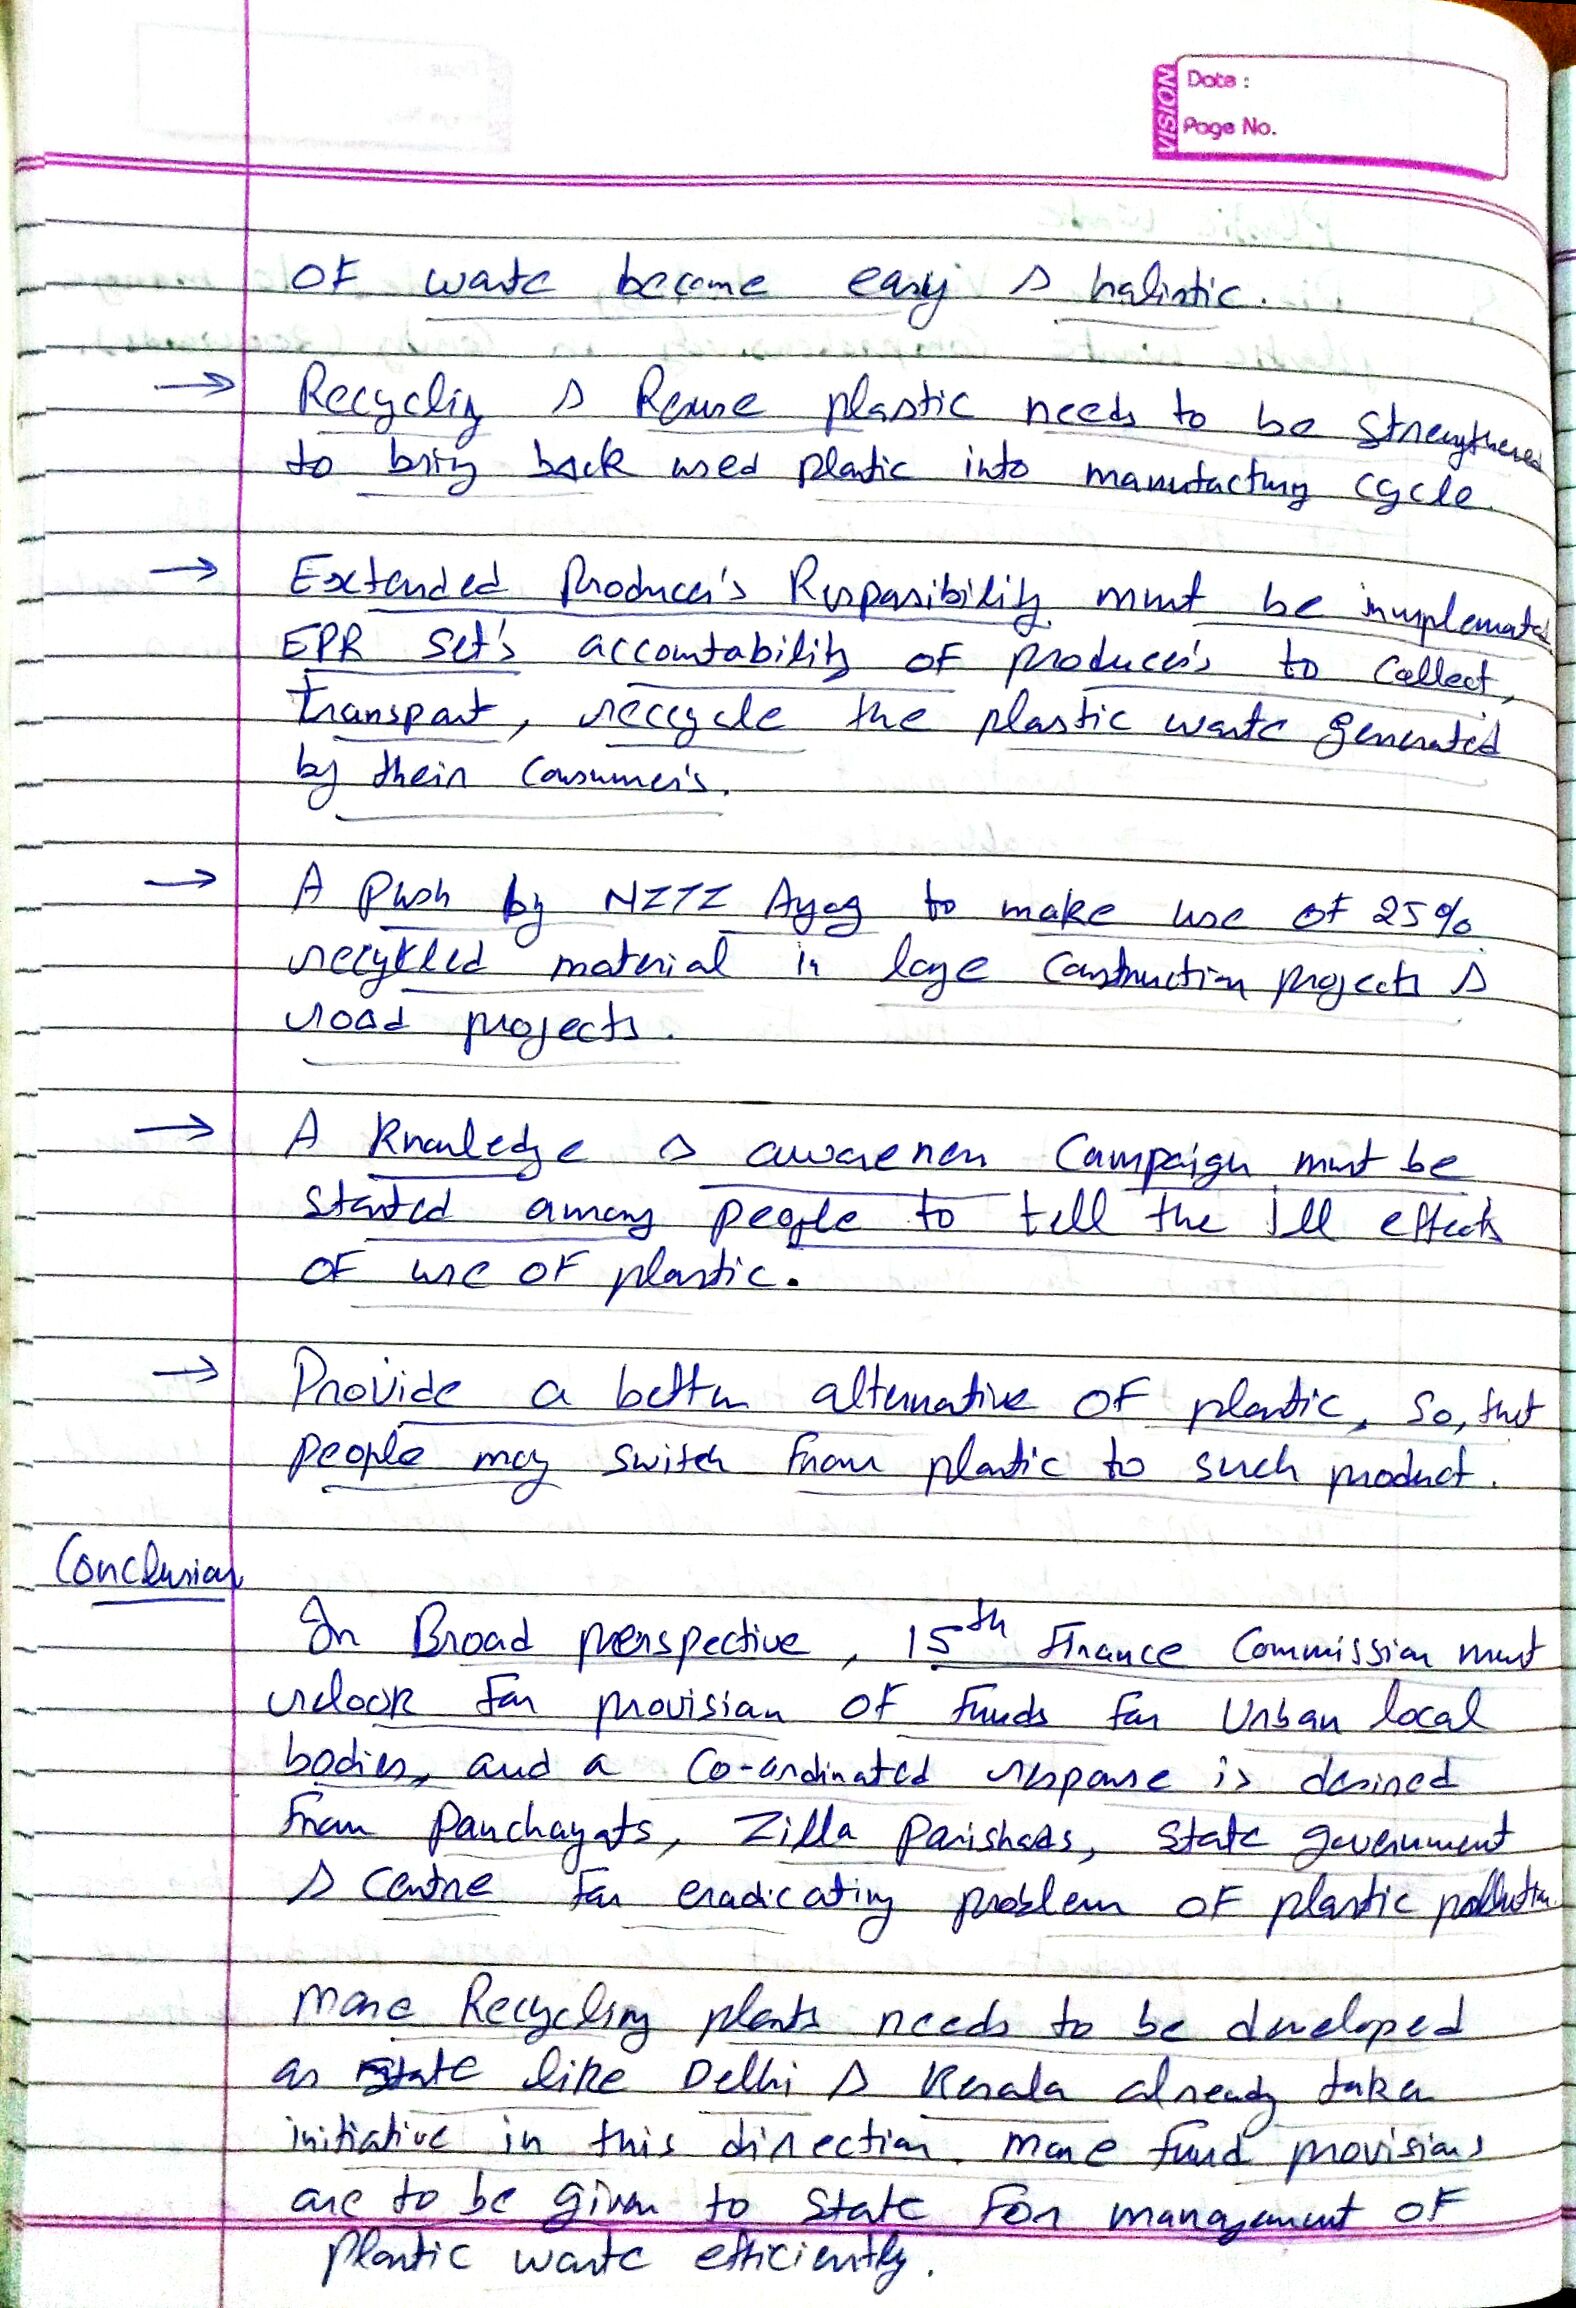 VISION
Date :
Page No.
OF waste become easy & holistic.
→ Recycling & Reuse plastic needs to be strengthened
to bring back used plastic into manufacturing cycle.
→ Extended Producer's Responsibility must be implemented
EPR set's accountability of producer's to collect,
transport, recycle the plastic waste generated
by their consumer's.
→ A Push by NITI Ayog to make use of 25%
recykled material in large construction projects &
road projects.
→ A Knowledge & awareness Campaign must be
started among people to tell the ill effects
of use of plastic.
→ Provide a better alternative of plastic, so, that
people may switch from plastic to such product.
Conclusion
In Broad perspective, 15th Finance Commission must
relook for provision of funds for Urban local
bodies, and a co-ordinated response is desired
from Panchayats, Zilla Parishads, state government
& centre for eradicating problem of plastic pollution.
more Recycling plants needs to be developed
as state like Delhi & Kerala already taken
initiative in this direction. more fund provisions
are to be given to state for management of
plastic waste efficiently.